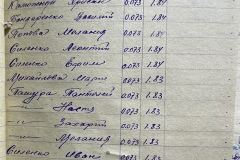 Калюжная Ирина 0.073 1.84
Бондаренко Василий 0.073 1.84
Попова Мелания 0.073 1.84
Силенко Леонтий 0.073 1.84
Силенко Ефим 0.073 1.84
Михайлова Мария 0.073 1.83
Кашура Пантелей 0.073 1.83
" Настя 0.073 1.83
" Захарий 0.073 1.83
" Мелания 0.073 1.83
Силенко Иван 0.073 1.83